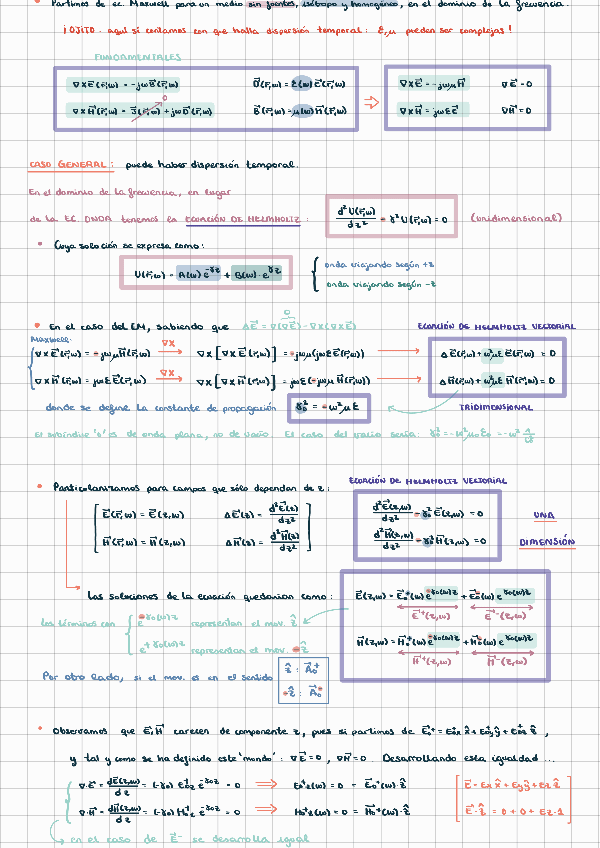 • Partimos de ec. Maxwell para un medio sin fuentes, isótropo y homogéneo, en el dominio de la frecuencia.
¡OJITO! aquí sí contamos con que halla dispersión temporal: ε, μ pueden ser complejas!
FUNDAMENTALES
∇×E⃗(r⃗,ω) = -jωB⃗(r⃗,ω)   D⃗(r⃗,ω) = ε(ω)E⃗(r⃗,ω) ⇒ ∇×E⃗ = -jωμH⃗   ∇E⃗ = 0
∇×H⃗(r⃗,ω) = J⃗(r⃗,ω) + jωD⃗(r⃗,ω)   B⃗(r⃗,ω) = μ(ω)H⃗(r⃗,ω)   ∇×H⃗ = jωεE⃗   ∇H⃗ = 0
0
CASO GENERAL: puede haber dispersión temporal.
En el dominio de la frecuencia, en lugar
de la EC. ONDA tenemos la ECUACIÓN DE HELMHOLTZ: d²U(r⃗,ω)/dz² - γ²U(r⃗,ω) = 0 (unidimensional)
• Cuya solución se expresa como:
U(r⃗,ω) = A(ω) e^-γz + B(ω) e^γz { onda viajando según +z
onda viajando según -z
• En el caso del EM, sabiendo que ΔE⃗ = ∇(∇E⃗) - ∇×(∇×E⃗)   ECUACIÓN DE HELMHOLTZ VECTORIAL
0
Maxwell:
∇×E⃗(r⃗,ω) = -jωμH⃗(r⃗,ω) →∇× ∇×[∇×E⃗(r⃗,ω)] = -jωμ(jωεE⃗(r⃗,ω)) → ΔE⃗(r⃗,ω) + ω²με E⃗(r⃗,ω) = 0
∇×H⃗(r⃗,ω) = jωεE⃗(r⃗,ω) →∇× ∇×[∇×H⃗(r⃗,ω)] = jωε(-jωμH⃗(r⃗,ω)) → ΔH⃗(r⃗,ω) + ω²με H⃗(r⃗,ω) = 0
donde se define la constante de propagación γ₀² = -ω²με   TRIDIMENSIONAL
El subíndice "0" es de onda plana, no de vacío. El caso del vacío sería: γ₀² = -ω²μ₀ε₀ = -ω²
• Particularizamos para campos que sólo dependan de z:   ECUACIÓN DE HELMHOLTZ VECTORIAL
E⃗(r⃗,ω) = E⃗(z,ω)   ΔE⃗(z) = d²E⃗(z)/dz²   d²E⃗(z,ω)/dz² - γ₀²E⃗(z,ω) = 0   UNA
H⃗(r⃗,ω) = H⃗(z,ω)   ΔH⃗(z) = d²H⃗(z)/dz²   d²H⃗(z,ω)/dz² - γ₀²H⃗(z,ω) = 0   DIMENSIÓN
Las soluciones de la ecuación quedarían como: E⃗(z,ω) = E⃗₀⁺(ω) e^-γ₀(ω)z + E⃗₀⁻(ω) e^γ₀(ω)z
E⃗⁺(z,ω)   E⃗⁻(z,ω)
los términos con { e^-γ₀(ω)z representan el mov. ẑ
H⃗(z,ω) = H⃗₀⁺(ω) e^-γ₀(ω)z + H⃗₀⁻(ω) e^γ₀(ω)z
e^+γ₀(ω)z representan el mov. -ẑ
H⃗⁺(z,ω)   H⃗⁻(z,ω)
Por otro lado, si el mov. es en el sentido ẑ : A⃗₀⁺
-ẑ : A⃗₀⁻
• Observamos que E⃗, H⃗ carecen de componente z, pues si partimos de E⃗₀⁺ = E₀ₓ x̂ + E₀y ŷ + E₀z ẑ,
y tal y como se ha definido este "mundo": ∇E⃗ = 0, ∇H⃗ = 0. Desarrollando esta igualdad...
∇·E⃗ = dE⃗(z,ω)/dz = (-γ₀) E₀z⁺ e^-γ₀z = 0 ⇒ E₀⁺z(ω) = 0 = E⃗₀⁺(ω)·ẑ   [ E⃗ = Ex x̂ + Ey ŷ + Ez ẑ
∇·H⃗ = dH⃗(z,ω)/dz = (-γ₀) H₀z⁺ e^-γ₀z = 0 ⇒ H₀⁺z(ω) = 0 = H⃗₀⁺(ω)·ẑ   E⃗·ẑ = 0 + 0 + Ez·1 ]
en el caso de E⃗⁻ se desarrolla igual